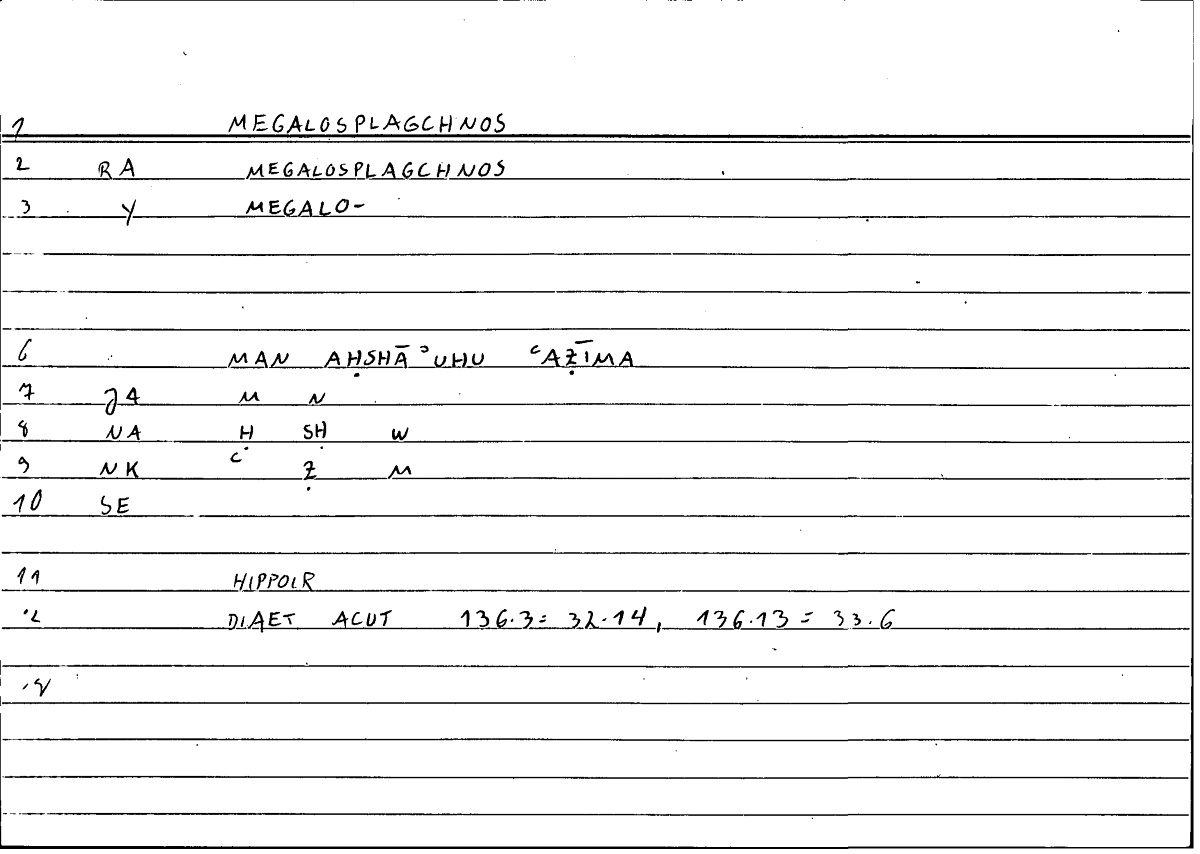 1 MEGALOSPLAGCHNOS
2 RA MEGALOSPLAGCHNOS
3 Y MEGALO-
6 MAN AḤSHĀʾUHU ʿAẒĪMA
7 JA M N
8 NA Ḥ SH W
9 NK ʿ Ẓ M
10 SE
11 HIPPOLR
12 DIAET ACUT 136.3 = 32.14, 136.13 = 33.6